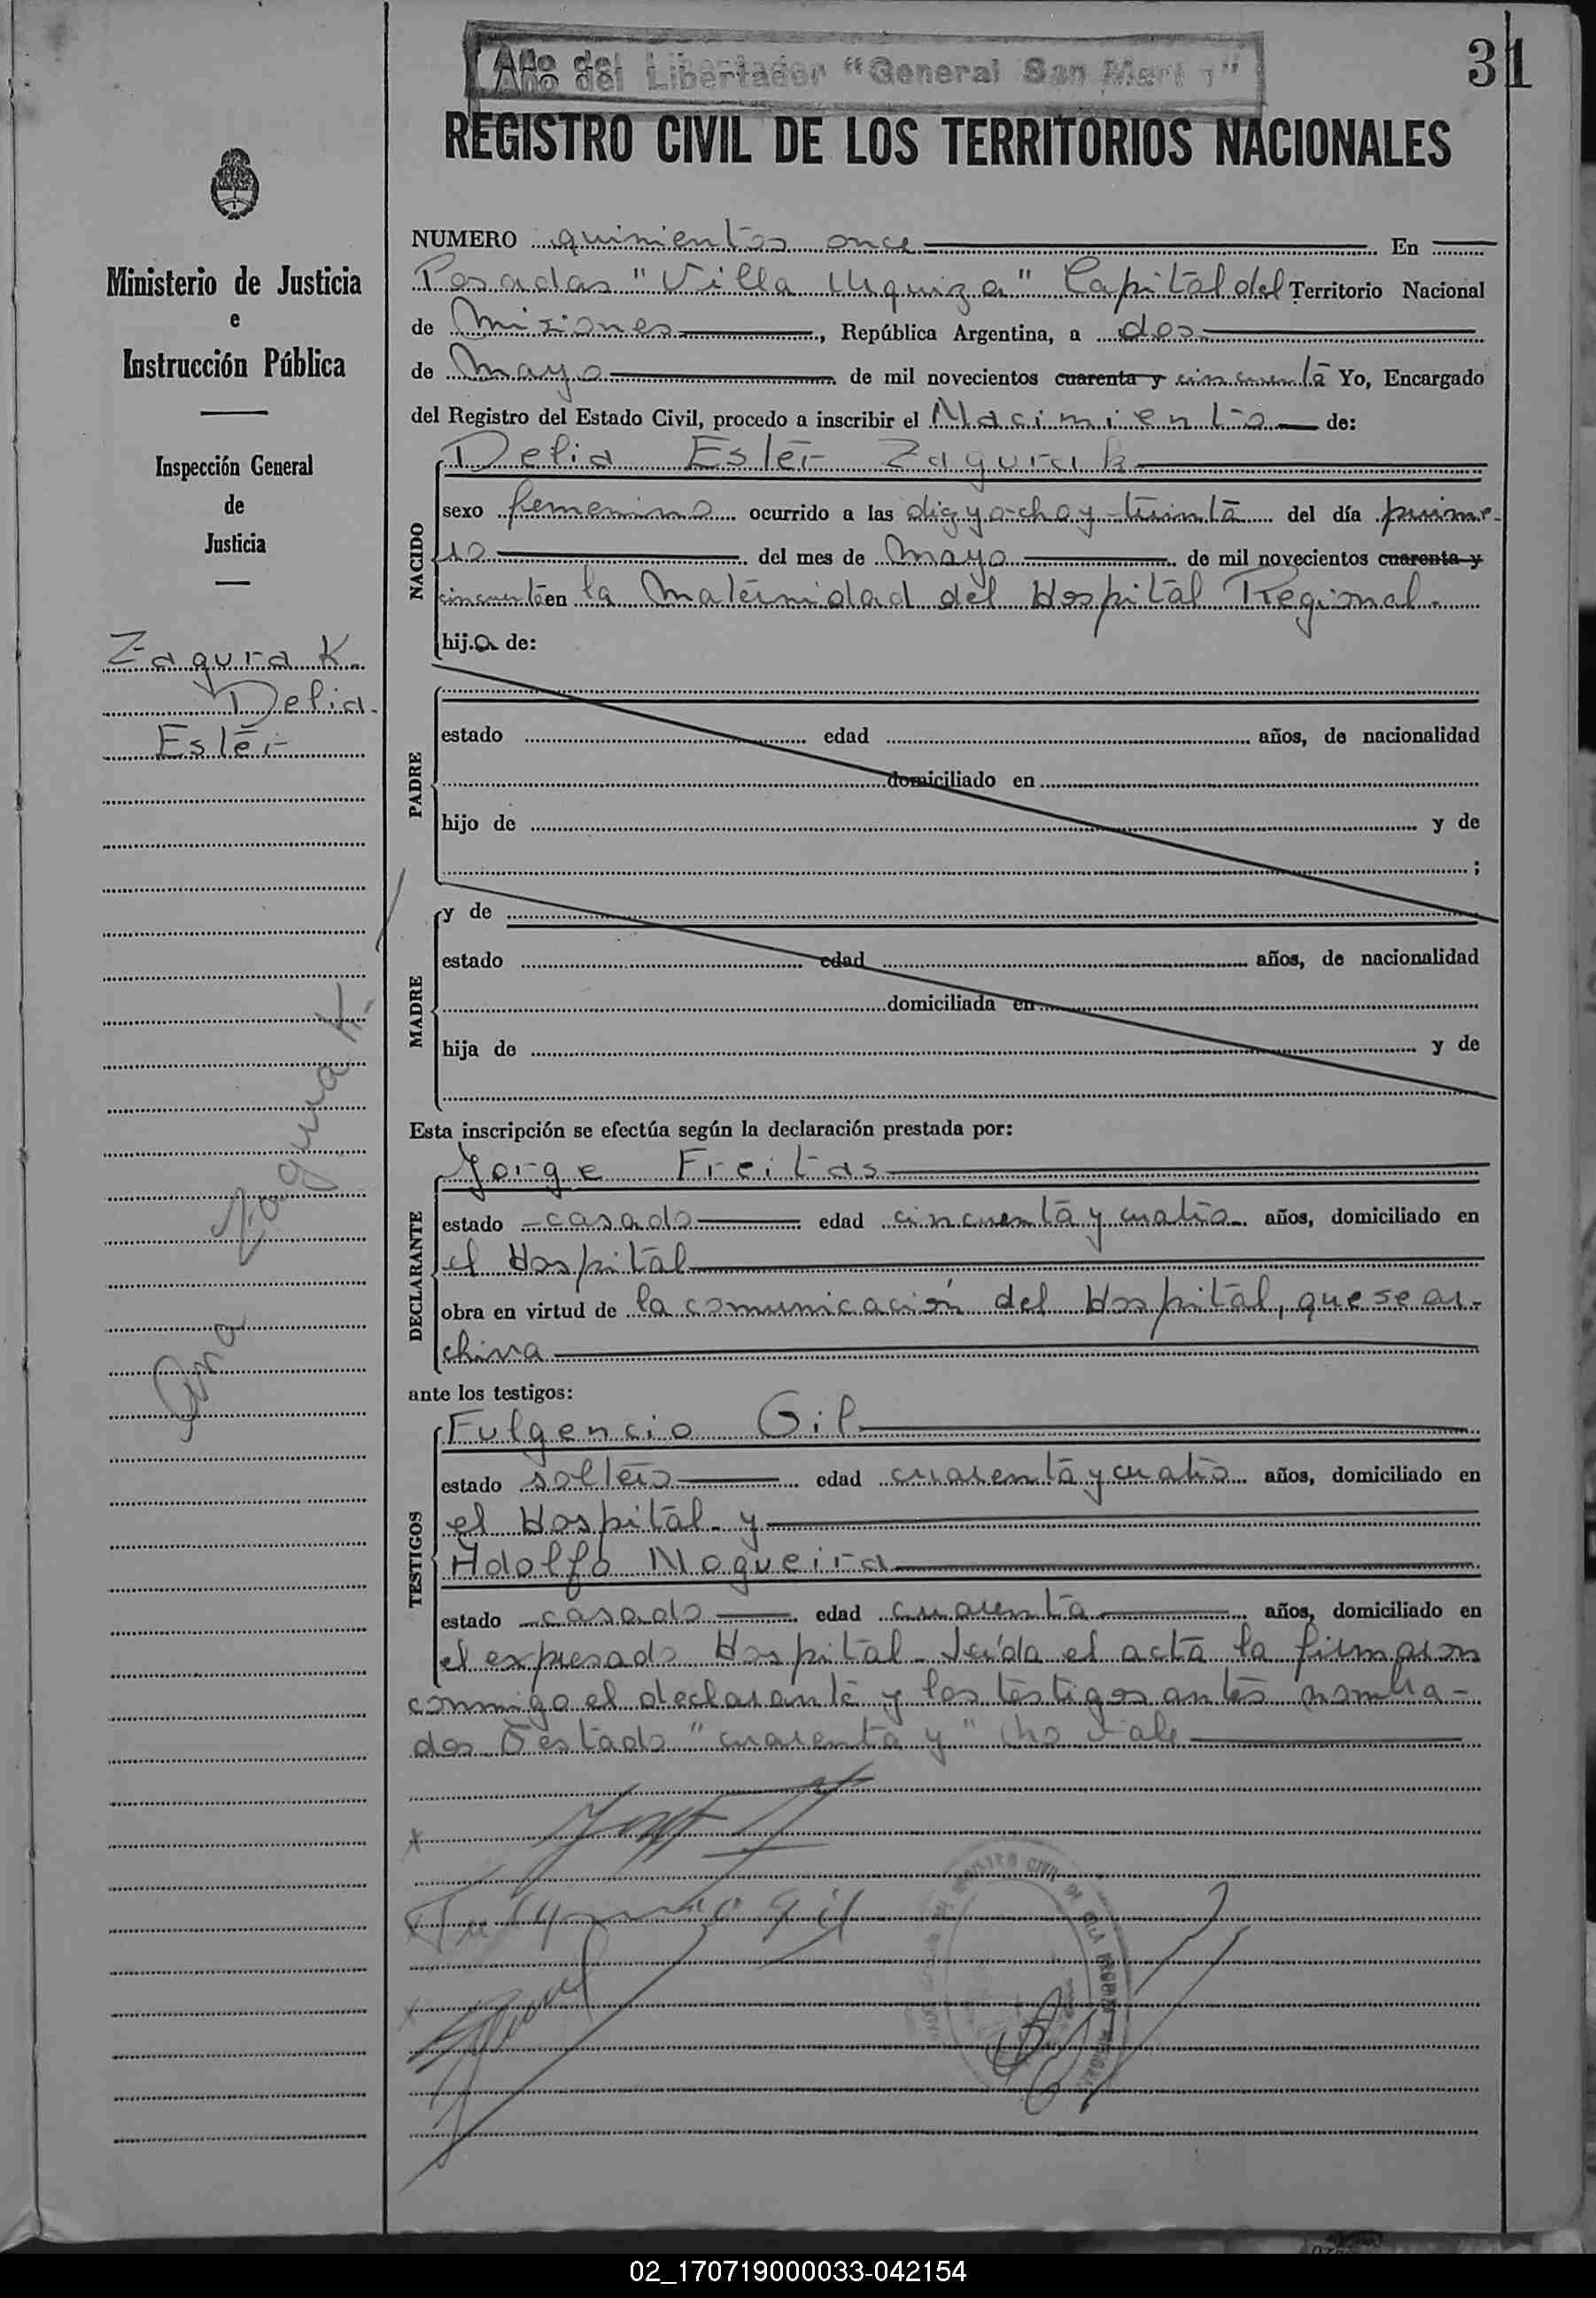 Año del Libertador "General San Martín"
31
REGISTRO CIVIL DE LOS TERRITORIOS NACIONALES
Ministerio de Justicia
e
Instrucción Pública
Inspección General
de
Justicia
Zagurak.
Delia
Ester
Ana Zagurak.
NUMERO quinientos once En
Posadas "Villa Urquiza" Capital del Territorio Nacional
de Misiones, República Argentina, a dos
de Mayo de mil novecientos cuarenta y cincuenta Yo, Encargado
del Registro del Estado Civil, procedo a inscribir el Nacimiento de:
NACIDO
Delia Ester Zagurak
sexo femenino ocurrido a las diezyochoy treinta del día prime-
ro del mes de Mayo de mil novecientos cuarenta y
cincuenta en la Maternidad del Hospital Regional.
hija de:
PADRE
estado edad años, de nacionalidad
domiciliado en
hijo de y de
;
MADRE
y de
estado edad años, de nacionalidad
domiciliada en
hija de y de
Esta inscripción se efectúa según la declaración prestada por:
DECLARANTE
Jorge Freitas
estado casado edad cincuenta y cuatro años, domiciliado en
el Hospital
obra en virtud de la comunicación del Hospital, que se ar-
chiva
ante los testigos:
TESTIGOS
Fulgencio Gil
estado soltero edad cuarenta y cuatro años, domiciliado en
el Hospital y
Adolfo Nogueira
estado casado edad cuarenta años, domiciliado en
el expresado Hospital. Leída el acta la firmaron
conmigo el declarante y los testigos antes nombra-
dos Testado "cuarenta y" No vale
Fulgencio Gil
02_170719000033-042154